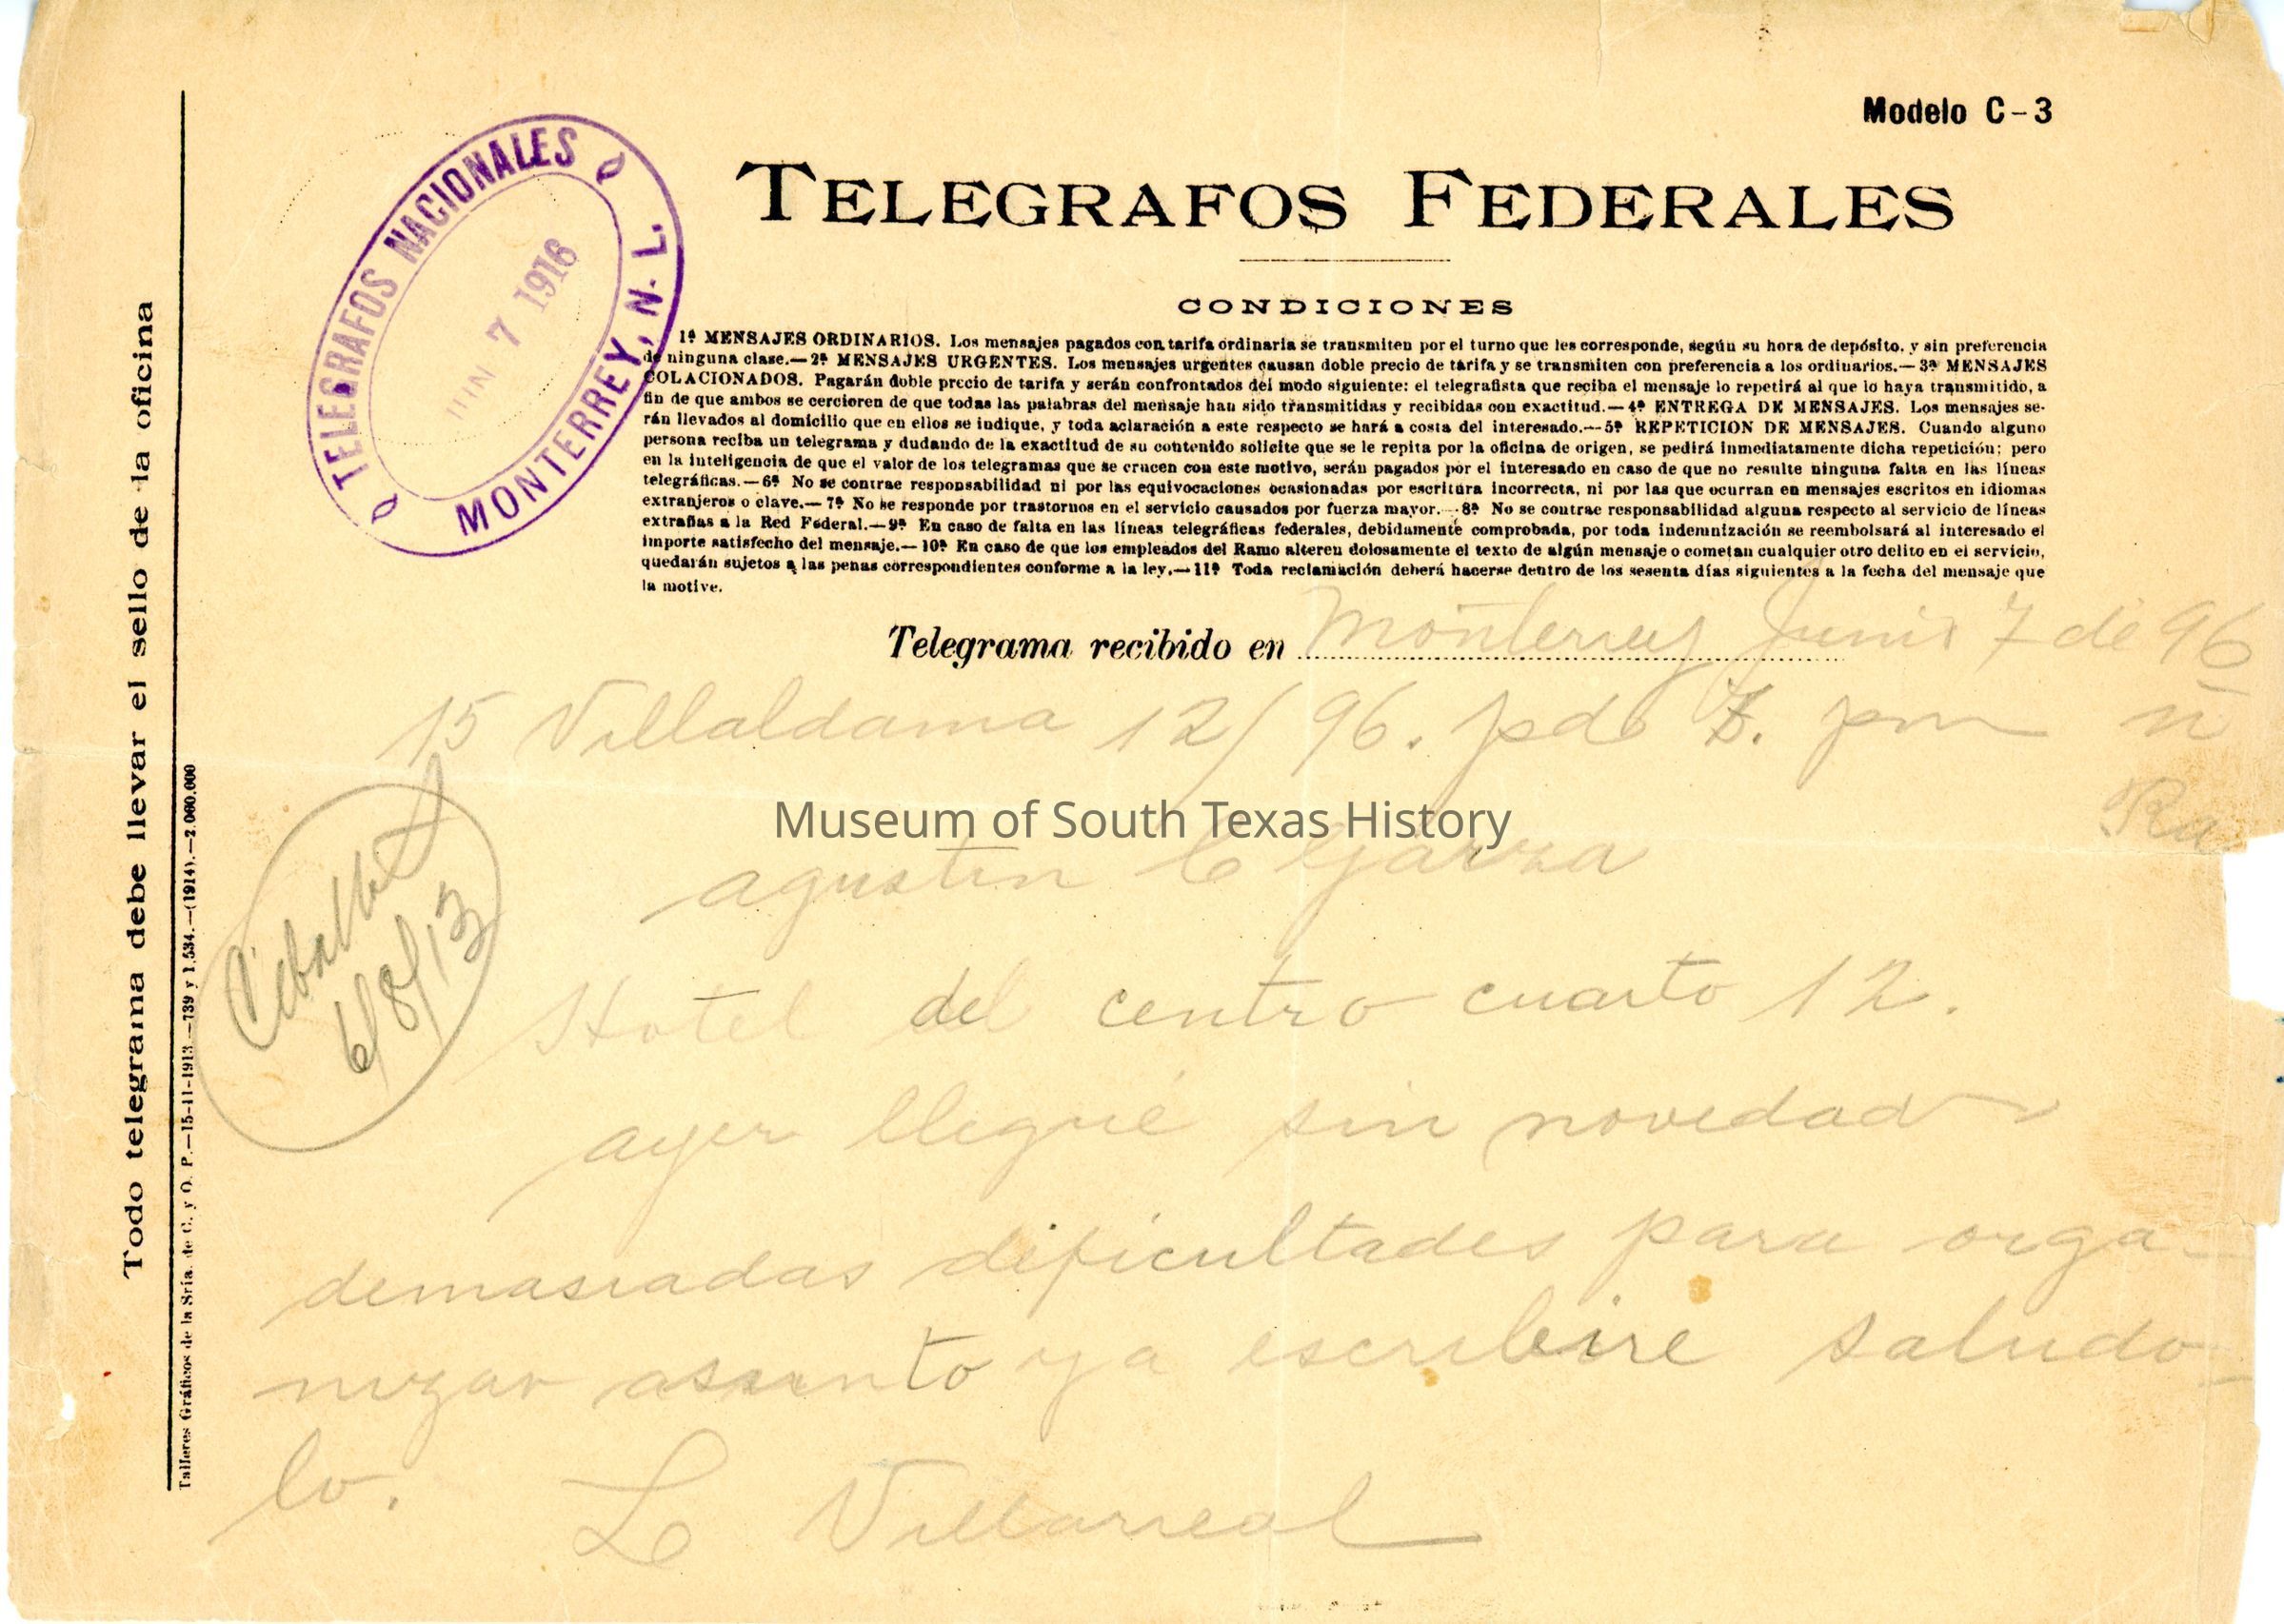 Modelo C-3
TELEGRAFOS FEDERALES
CONDICIONES
1ª MENSAJES ORDINARIOS. Los mensajes pagados con tarifa ordinaria se transmiten por el turno que les corresponde, según su hora de depósito, y sin preferencia
de ninguna clase.—2ª MENSAJES URGENTES. Los mensajes urgentes causan doble precio de tarifa y se transmiten con preferencia a los ordinarios.—3ª MENSAJES
COLACIONADOS. Pagarán doble precio de tarifa y serán confrontados del modo siguiente: el telegrafista que reciba el mensaje lo repetirá al que lo haya transmitido, a
fin de que ambos se cercioren de que todas las palabras del mensaje han sido transmitidas y recibidas con exactitud.—4ª ENTREGA DE MENSAJES. Los mensajes se-
rán llevados al domicilio que en ellos se indique, y toda aclaración a este respecto se hará a costa del interesado.—5ª REPETICION DE MENSAJES. Cuando alguno
persona reciba un telegrama y dudando de la exactitud de su contenido solicite que se le repita por la oficina de origen, se pedirá inmediatamente dicha repetición; pero
en la inteligencia de que el valor de los telegramas que se crucen con este motivo, serán pagados por el interesado en caso de que no resulte ninguna falta en las líneas
telegráficas.—6ª No se contrae responsabilidad ni por las equivocaciones ocasionadas por escritura incorrecta, ni por las que ocurran en mensajes escritos en idiomas
extranjeros o clave.—7ª No se responde por trastornos en el servicio causados por fuerza mayor.—8ª No se contrae responsabilidad alguna respecto al servicio de líneas
extrañas a la Red Federal.—9ª En caso de falta en las líneas telegráficas federales, debidamente comprobada, por toda indemnización se reembolsará al interesado el
importe satisfecho del mensaje.—10ª En caso de que los empleados del Ramo alteren dolosamente el texto de algún mensaje o cometan cualquier otro delito en el servicio,
quedarán sujetos a las penas correspondientes conforme a la ley.—11ª Toda reclamación deberá hacerse dentro de los sesenta días siguientes a la fecha del mensaje que
la motive.
TELEGRAFOS NACIONALES
JUN 7 1916
MONTERREY, N. L.
Telegrama recibido en Monterrey Junio 7 de 96
15 Villaldama 12/96. pdo 7. pm n
Ra
Museum of South Texas History
agustin C Garza
6/8/13
Hotel del centro cuarto 12.
ayer llegué sin novedad
demasiadas dificultades para orga-
nizar asunto ya escribire saludo
lo.
L Villarreal
Todo telegrama debe llevar el sello de la oficina
Talleres Gráficos de la Sría. de C. y O. P.—15-11-1913.—739 y 1,534.—(1914).—2.060.000